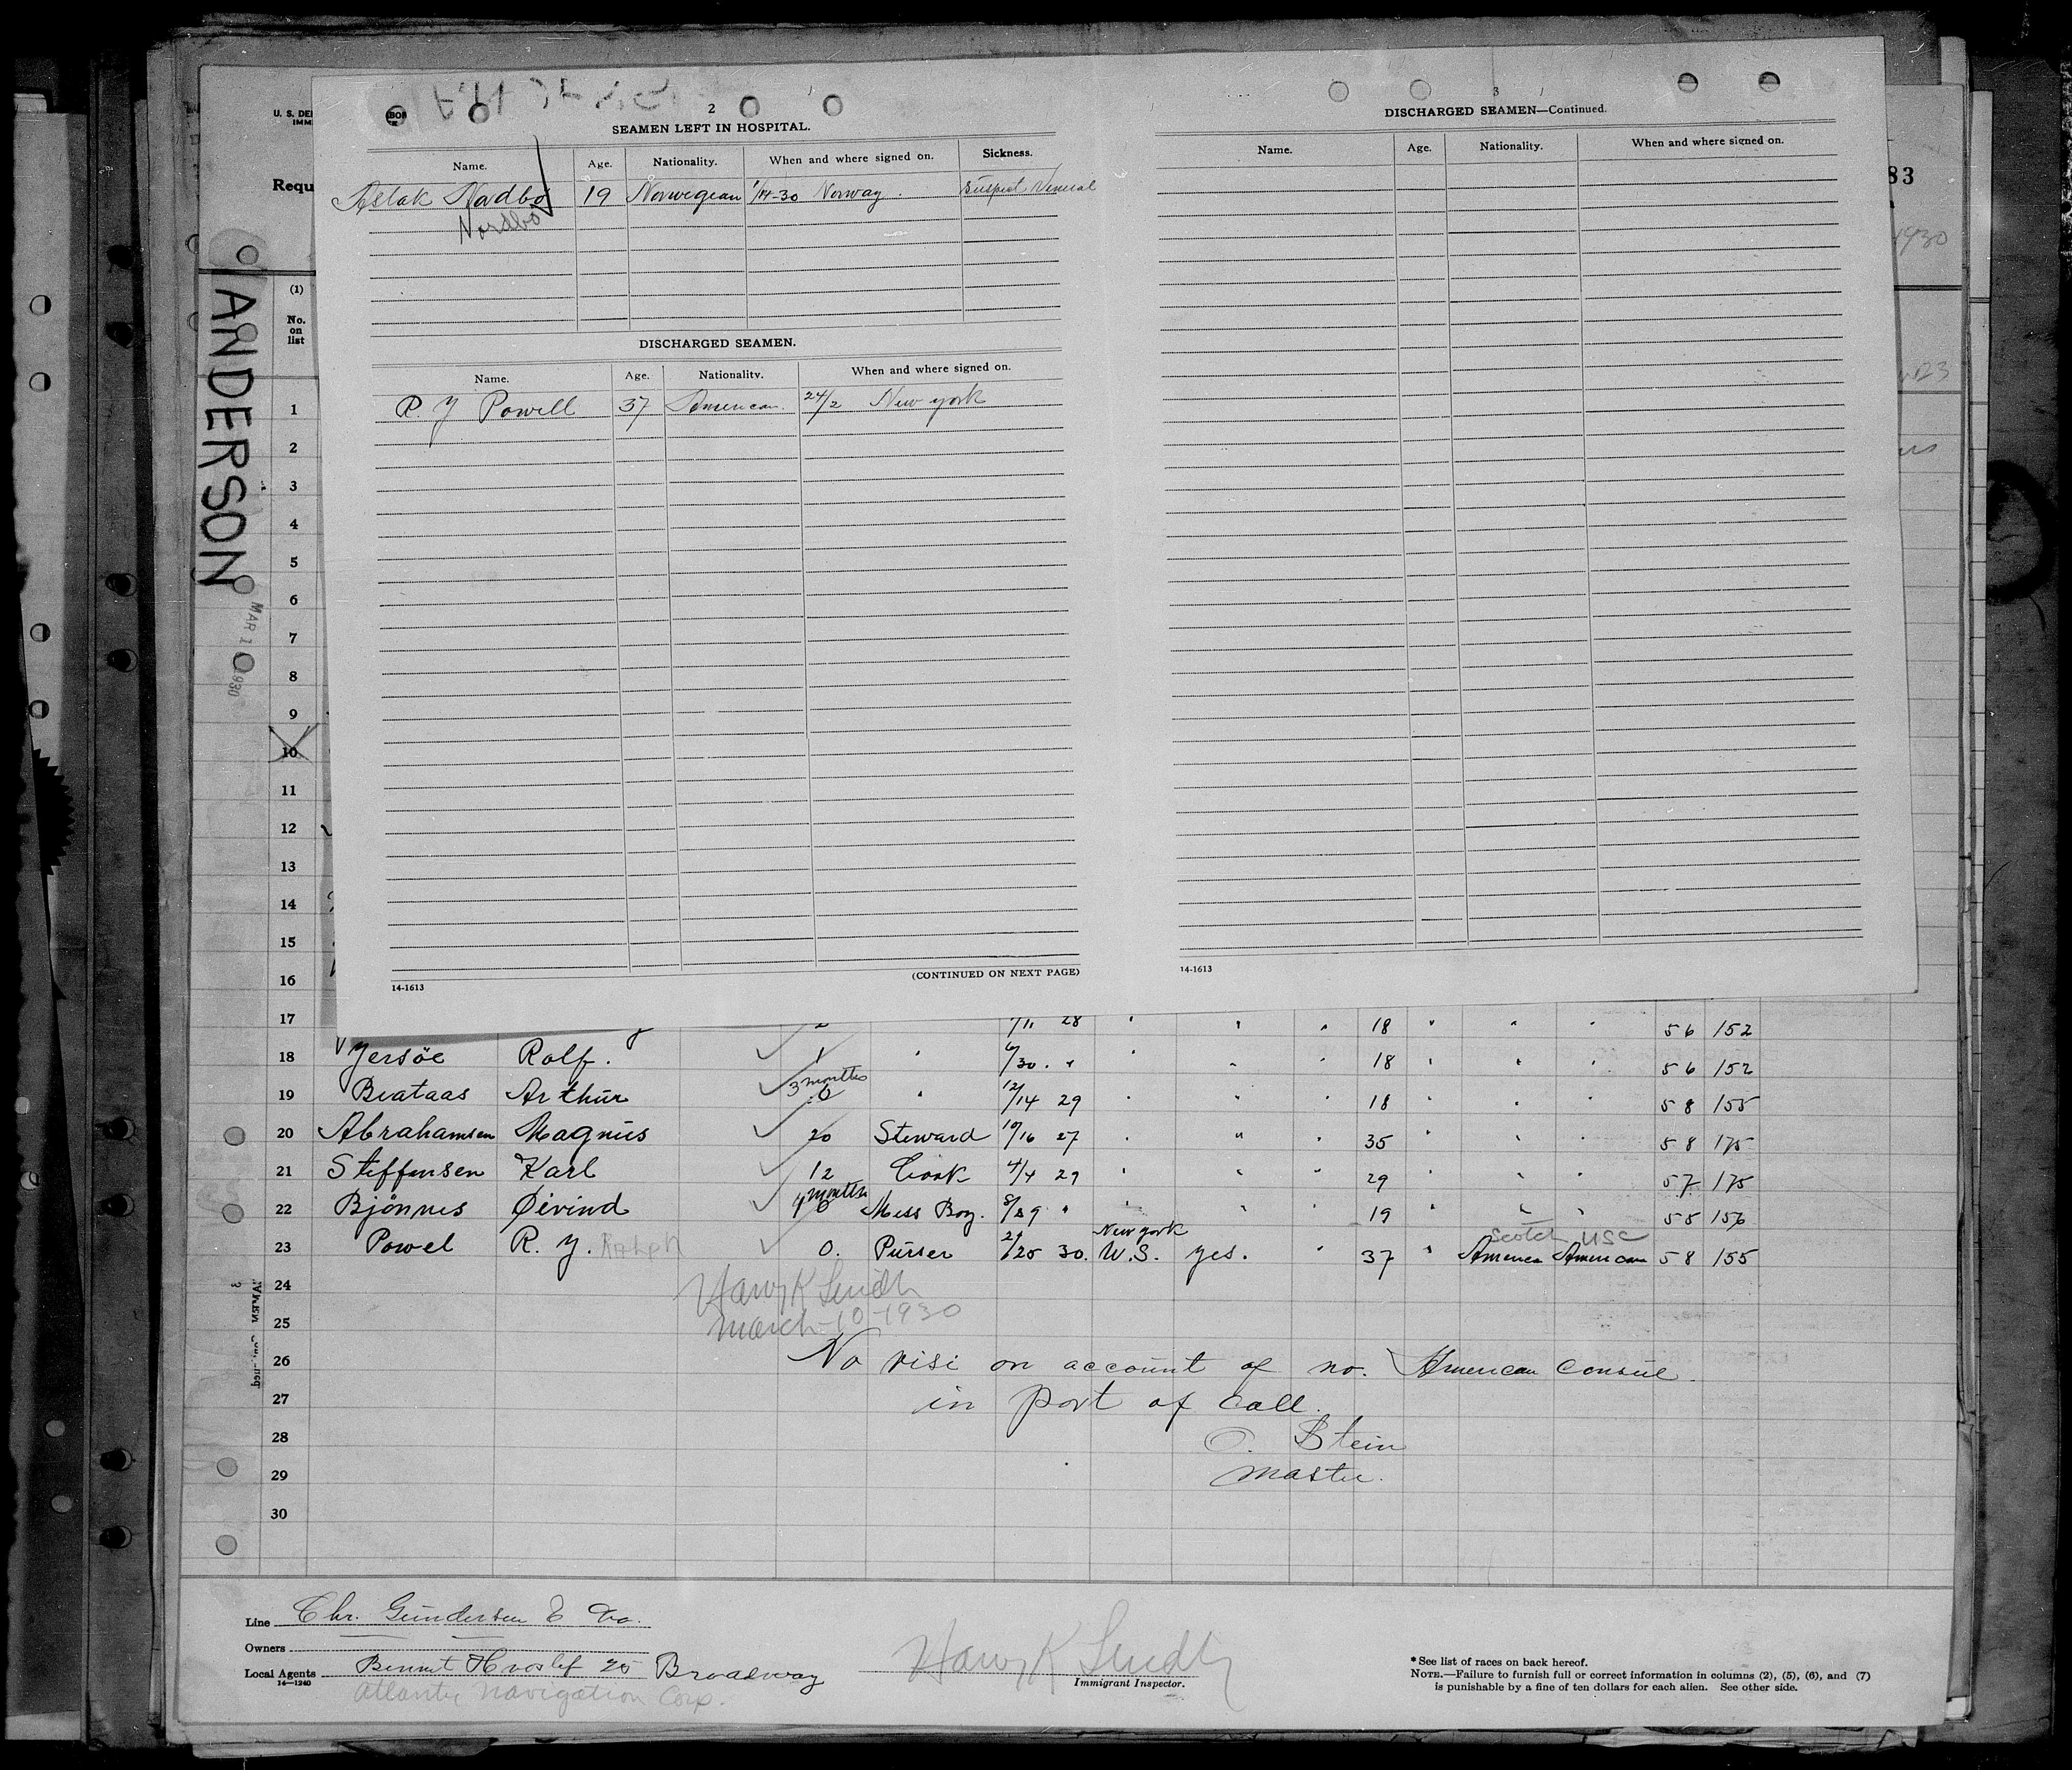 2
SEAMEN LEFT IN HOSPITAL.
Name. Age. Nationality. When and where signed on. Sickness.
Aslak Nordbö 19 Norwegian 1/14-30 Norway. Suspect Veneral
Nordbö
DISCHARGED SEAMEN.
Name. Age. Nationality. When and where signed on.
R. Y Powell 37 American. 24/2 New york
(CONTINUED ON NEXT PAGE)
14-1613
3
DISCHARGED SEAMEN—Continued.
Name. Age. Nationality. When and where signed on.
14-1613
U. S. DE
IMM
Requ
83
1930
ANDERSON
MAR 1 1930
(1)
No.
on
list
1
2
3
4
5
6
7
8
9
10
11
12
13
14
15
16
17 2 7/11 28 " " " 18 " " " 56 152
18 Jersöe Rolf. 1 " 6/30. " " " " 18 " " " 56 152
19 Brataas Arthur 3 months 0 " 12/14 29 " " " 18 " " " 58 155
20 Abrahamsen Magnus 20 Steward 10/16 27 " " " 35 " " " 58 175
21 Steffensen Karl 12 Cook 4/4 29 " " " 29 " " " 57 175
22 Bjönnes Øivind months 0 Mess Boy. 8/29 " " " " 19 " " " 55 156
New york Scotch USC
23 Powel R. Y. Ralph 0. Purser 30. U.S. yes. " 37 " America American 58 155
24
25 March-10-1930
26 No visi on account of no. American Consul.
27 in port of call.
28 O. Stein
29 Master.
30
Line Chr. Gundersen & Co.
Owners
Local Agents Bennet Hvoslef 20 Broadway
14—1240
Atlantic Navigation Corp.
Immigrant Inspector.
* See list of races on back hereof.
NOTE.—Failure to furnish full or correct information in columns (2), (5), (6), and (7)
is punishable by a fine of ten dollars for each alien. See other side.